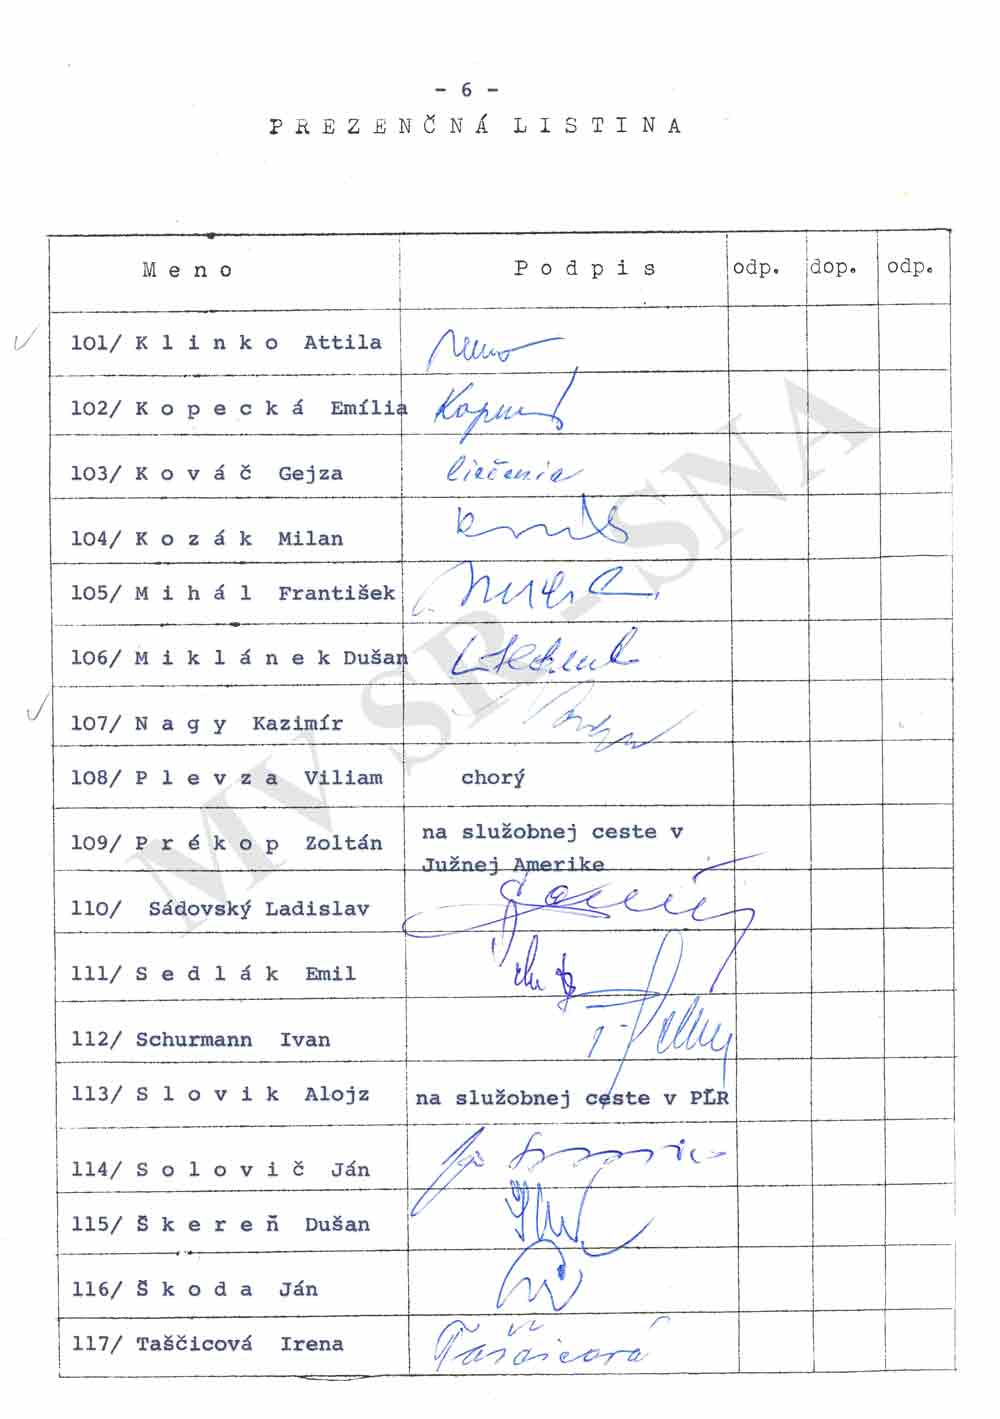 - 6 -
PREZENČNÁ LISTINA
Meno Podpis odp. dop. odp.
101/ Klinko Attila
102/ Kopecká Emília
103/ Kováč Gejza liečenia
104/ Kozák Milan
105/ Mihál František
106/ Miklánek Dušan
107/ Nagy Kazimír
108/ Plevza Viliam chorý
109/ Prékop Zoltán na služobnej ceste v
Južnej Amerike
110/ Sádovský Ladislav
111/ Sedlák Emil
112/ Schurmann Ivan
113/ Slovik Alojz na služobnej ceste v PĽR
114/ Solovič Ján
115/ Škereň Dušan
116/ Škoda Ján
117/ Taščicová Irena Taščicová
MV SR - SNA